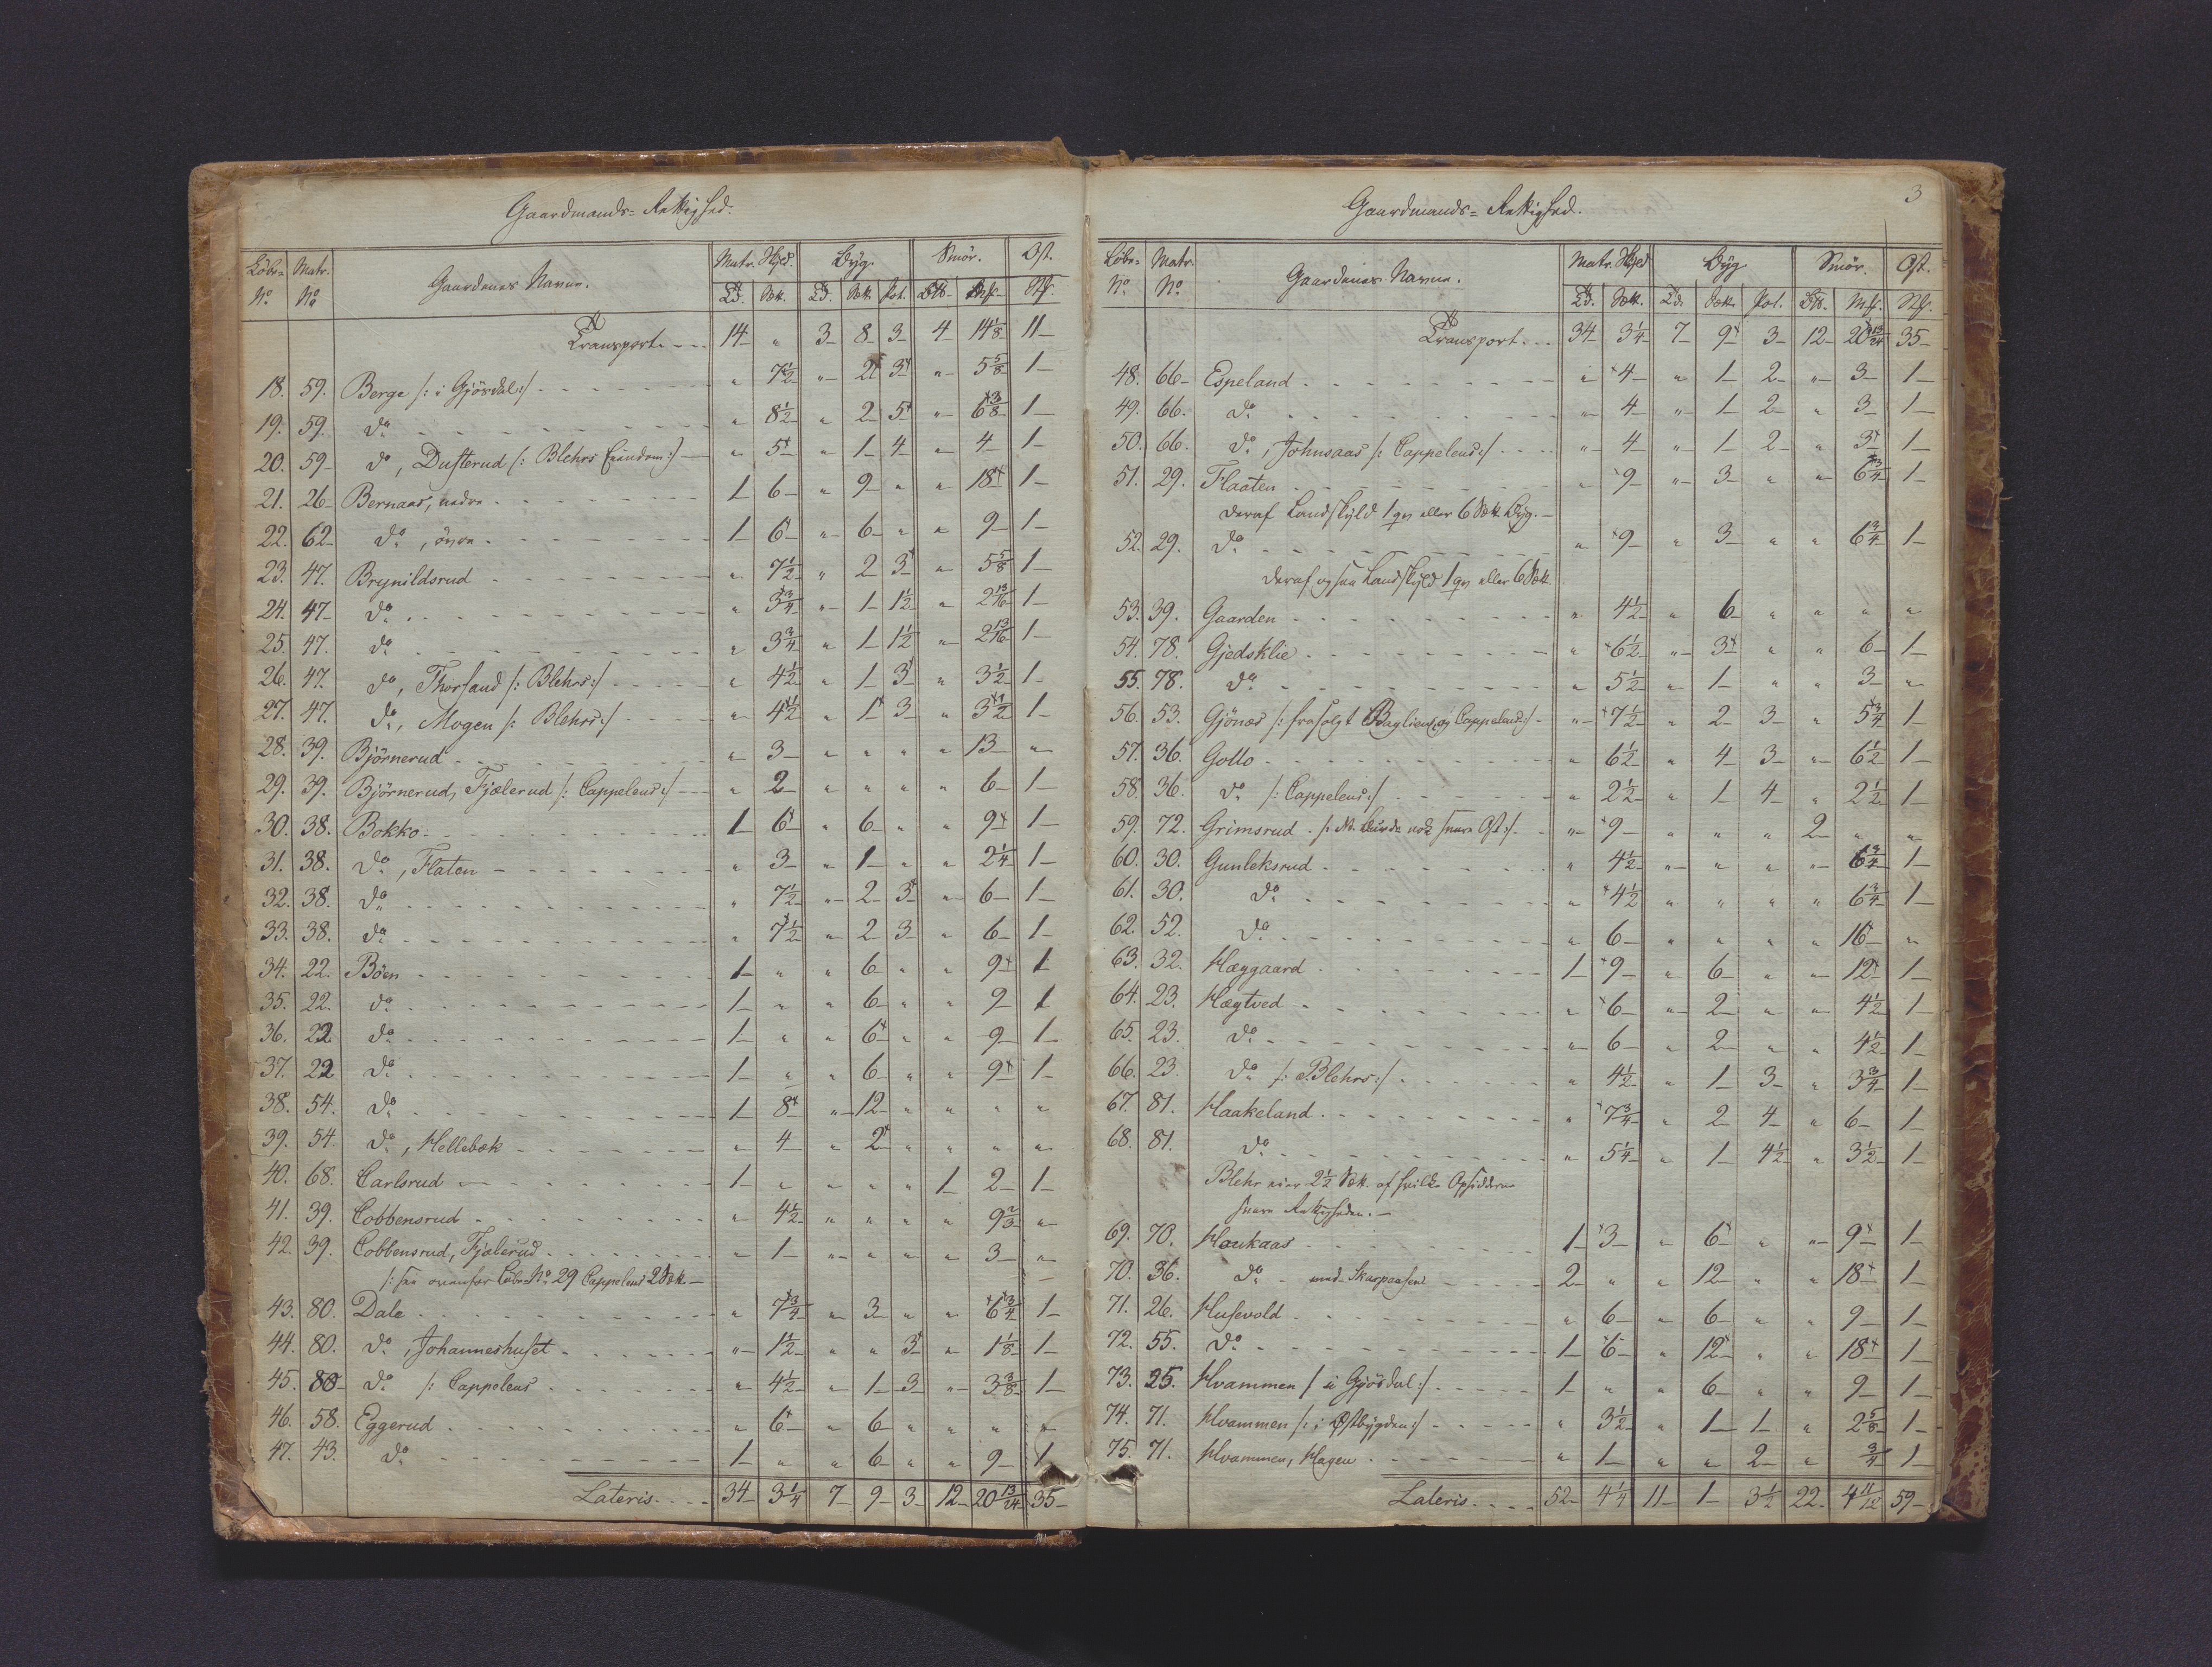 Gaardmands- Rettighed.
Løbe- Matr. Gaardenes Navne. Matr. Skyld. Byg. Smör. Ost.
No No Ld. Sætt. Ld. Sætt. Pot. Mk.
Transport. 14 " 3 8 3 4 14 1/8 11
18. 59. Berge /: i Gjösdal :/ " 7 1/2 " 2 3 " 5 5/8 1
19. 59. do " 8 1/2 " 2 5 " 6 3/8 1
20. 59 do, Dusterud /: Blehrs Eiendom :/ " 5 " 1 4 " 4 1
21. 26 Bernaas, nedre 1 6 " 9 " " 18 1
22. 62 do, övre 1 6 " 6 " " 9 1
23. 47. Brynildsrud " 7 1/2 " 2 3 " 5 5/8 1
24. 47 do " 3 3/4 " 1 1 1/2 " 2 13/16 1
25. 47. do " 3 3/4 " 1 1 1/2 " 2 13/16 1
26. 47. do, Thorsand /: Blehrs :/ " 4 1/2 " 1 3 " 3 1/2 1
27. 47. do, Mogen /: Blehrs :/ " 4 1/2 " 1 3 " 3 1/2 1
28. 39. Björnerud " 3 " " " " 13 "
29. 39. Björnerud, Fjælerud /: Cappelens :/ " 2 " " " " 6 1
30. 38. Bokko 1 6 " 6 " " 9 1
31. 38. do, Flaten " 3 " 1 " " 2 1/4 1
32. 38. do " 7 1/2 " 2 3 " 6 1
33. 38. do " 7 1/2 " 2 3 " 6 1
34. 22. Böen 1 " " 6 " " 9 1
35. 22. do 1 " " 6 " " 9 1
36. 22 do 1 " " 6 " " 9 1
37. 22 do 1 " " 6 " " 9 1
38. 54. do 1 8 " 12 " " " "
39. 54. do, Hellebæk " 4 " 2 " " " "
40. 68. Carlsrud 1 " " " " 1 2 1
41. 39. Cobbensrud " 4 1/2 " " " " 9 2/3 "
42. 39. Cobbensrud, Fjælerud " 1 " " " " 3 "
/: see ovenfor Löbe No 29 Cappelens 2 Sætt.
43. 80. Dale " 7 3/4 " 3 " " 6 3/4 1
44. 80. do, Johanneshuset " 1 1/2 " " 3 " 1 1/8 1
45. 80 do /: Cappelens " 4 1/2 " 1 3 " 3 3/8 1
46. 58. Eggerud " 6 " 6 " " " "
47. 43. do 1 " " 6 " " 9 1
Lateris 34 3 1/4 7 9 3 12 20 13/24 35
3
Gaardmands- Rettighed.
Løbe- Matr. Gaardenes Navne. Matr. Skyld Byg Smör. Ost.
No No Ld. Sætt. Ld. Sætt. Pot. Mk.
Transport 34 3 1/4 7 9 3 12 20 13/24 35
48. 66 Espeland " 4 " 1 2 " 3 1
49. 66. do " 4 " 1 2 " 3 1
50. 66. do, Johnsaas /: Cappelens :/ " 4 " 1 2 " 3 1
51. 29. Flaaten " 9 " 3 " " 6 3/4 1
deraf Landskyld 1 qr eller 6 Sætt. Byg.
52. 29. do " 9 " 3 " " 6 3/4 1
deraf ogsaa Landskyld 1 qr eller 6 Sætt.
53. 39. Gaarden " 4 1/2 " 6 " " " "
54. 78. Gjedsklie " 6 1/2 " 3 " " 6 1
55. 78. do " 5 1/2 " 1 " " 3 "
56. 53. Gjönæs /: frasolgt Bagliens og Cappelens :/ " 7 1/2 " 2 3 " 5 3/4 1
57. 36. Gollo " 6 1/2 " 4 3 " 6 1/2 1
58. 36. do /: Cappelens :/ " 2 1/2 " 1 4 " 2 1/2 1
59. 72. Grimsrud /: Nb. burde nok svare Ost :/ " 9 " " " 2 " "
60. 30. Gunleksrud " 4 1/2 " " " " 6 3/4 1
61. 30. do " 4 1/2 " " " " 6 3/4 1
62. 52. do " 6 " " " " 16 "
63. 32. Hæggaard 1 9 " 6 " " 12 1
64. 23. Hægtved " 6 " 2 " " 4 1/2 1
65. 23. do " 6 " 2 " " 4 1/2 1
66. 23. do /: Blehrs :/ " 4 1/2 " 1 3 " 3 3/4 1
67. 81. Haakeland " 7 3/4 " 2 4 " 6 1
68. 81. do " 5 1/4 " 1 4 1/2 " 3 1/2 1
Blehr eier 2 1/2 Sætt. af hvilke Opsidderne
svare Rettigheden.
69. 70. Haukaas 1 3 " 6 " " 9 1
70. 36. do med Skarpaasen 2 " " 12 " " 18 1
71. 26. Husevold " 6 " 6 " " 9 1
72. 55. do 1 6 " 12 " " 18 1
73. 25. Hvammen /: i Gjösdal :/ 1 " " 6 " " 9 1
74. 71. Hvammen /: i Østbygden :/ " 3 1/2 " 1 1 " 2 5/8 1
75. 71. Hvammen, Hagen " 1 " " 2 " 3/4 1
Lateris 52 4 1/4 11 1 3 1/2 22 4 11/12 59